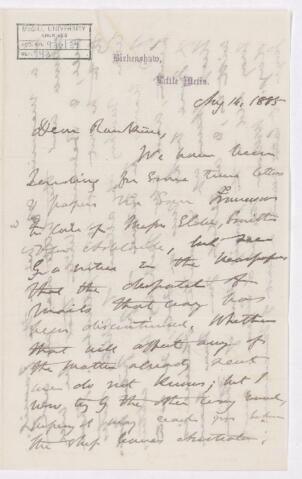 McGILL UNIVERSITY
ARCHIVES
ACC. NO. 936/34
REF.
Birkenshaw,
Little Metis.
Aug 16, 1885
Dear Rankine,
We have been
sending for some time letters
& papers via San Francisco
to care of Messrs Elder, Smith
&                    , but see
by a notice in the newspapers
that the despatch of
mails that way has
been discontinued. Whether
that will affect any of
the matter already sent
we do not know; but I
now try the other way
hoping it may reach you before
the ship leaves Australia.